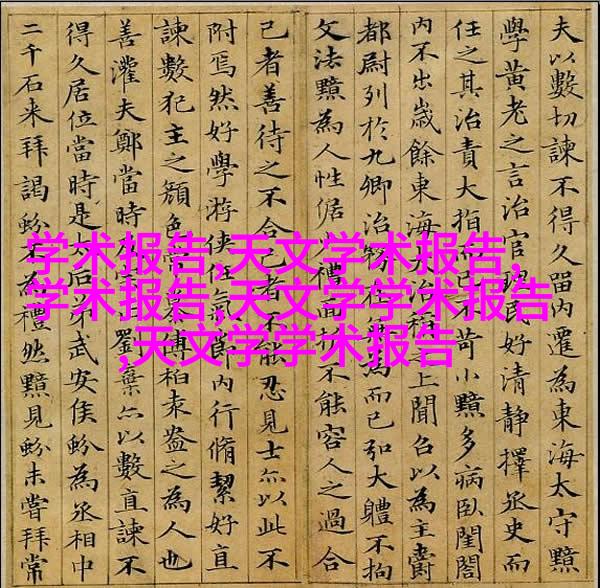 夫以數切諫不得久留內遷為東海太守黯
學黃老之言治官理民好清靜擇丞史而
任之其治責大指而已不苛小黯多病臥閨閤
內不出歲餘東海大治稱之上聞召以為主爵
都尉列於九卿治務在無為而已弘大體不拘
文法黯為人性倨少禮面折不能容人之過合
己者善待之不合己者不能忍見士亦以此不
附焉然好學游俠任氣節內行脩絜好直
諫數犯主之顏色常慕傅柏袁盎之為人也
善灌夫鄭當時劉棄亦以數直諫不
得久居位當時是太后弟武安侯蚡為丞相中
二千石来拜謁蚡不為禮然黯見蚡未嘗拜常
学术报告,天文学术报告,
学术报告,天文学学术报告
,天文学学术报告